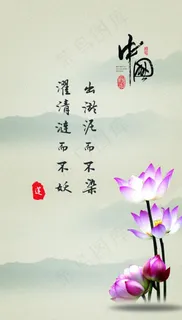 中國
出淤泥而不染
濯清涟而不妖
莲